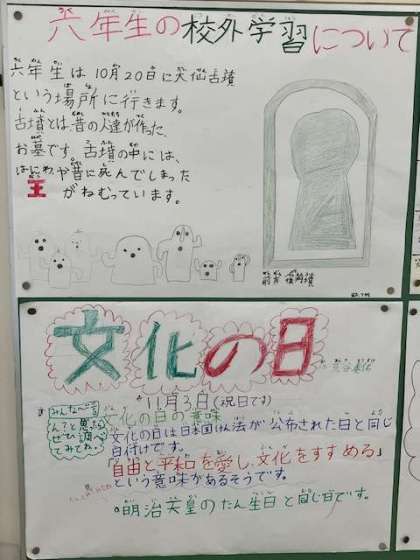 六年生の校外学習について
六年生は10月20日に大仙古墳
という場所に行きます。
古墳とは、昔の人達が作った、
お墓です。古墳の中には、
はにわや昔に死んでしまった
王がねむっています。
前方後円墳
文化の日
11月3日(祝日です)
みんなべ
ぜひ調べ
てみてね。
文化の日の意味
文化の日は日本国けん法が公布された日と同じ
日付けです。
「自由と平和を愛し、文化をすすめる」
という意味があるそうです。
明治天皇のたん生日と同じ日です。